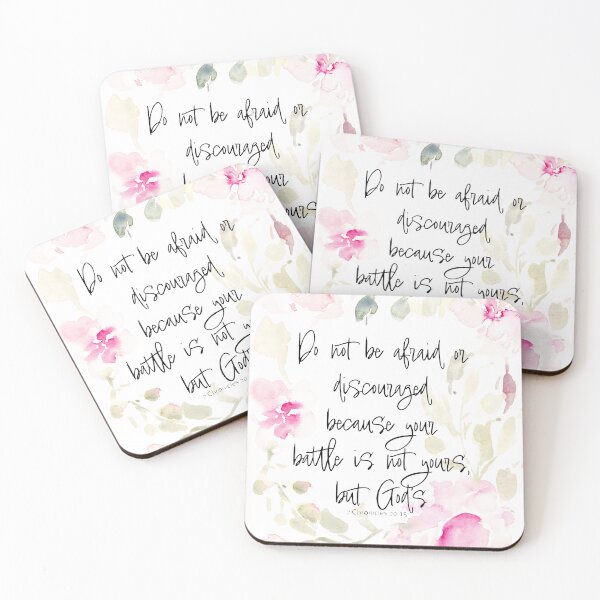 Do not be afraid or
discouraged
your
Do not be afraid or
discouraged
because your
battle is not yours,
Do not be afraid or
discouraged
because your
battle is not
but God's
Do not be afraid or
discouraged
because your
battle is not yours,
but God's
2 Chronicles 20:15